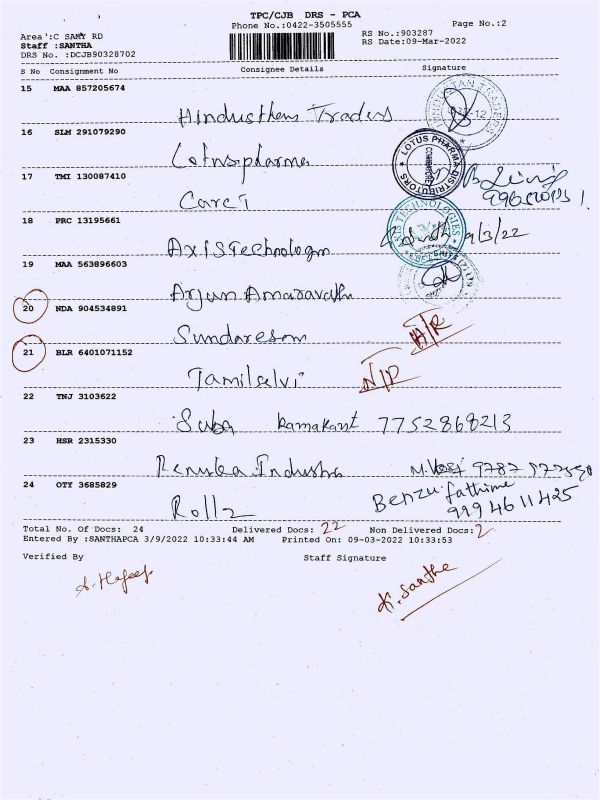 TPC/CJB DRS - PCA
Phone No.:0422-3505555
Page No.:2
Area :C SAMY RD
Staff :SANTHA
DRS No. :DCJB90328702
RS No.:903287
RS Date:09-Mar-2022
S No Consignment No Consignee Details Signature
15 MAA 857205674
Hindusthan Traders
16 SLM 291079290
Lotuspharma
LOTUS PHARMA DISTRIBUTORS
COIMBATORE
17 TMI 130087410
CareT
18 PRC 13195661
AXIS TECHNOLOGIES
9/3/22
AXISTechnologin
19 MAA 563896603
Arjun Amaravathi
20 NDA 904534891
Sundaresan
21 BLR 6401071152
Tamilselvi
N/P
22 TNJ 3103622
Suba Ramakant 7752868213
23 HSR 2315330
Renuka Industris
24 OTY 3685829
Rollz
9994611425
Total No. Of Docs: 24 Delivered Docs: 22 Non Delivered Docs: 2
Entered By :SANTHAPCA 3/9/2022 10:33:44 AM Printed On: 09-03-2022 10:33:53
Verified By Staff Signature
K. Santhe